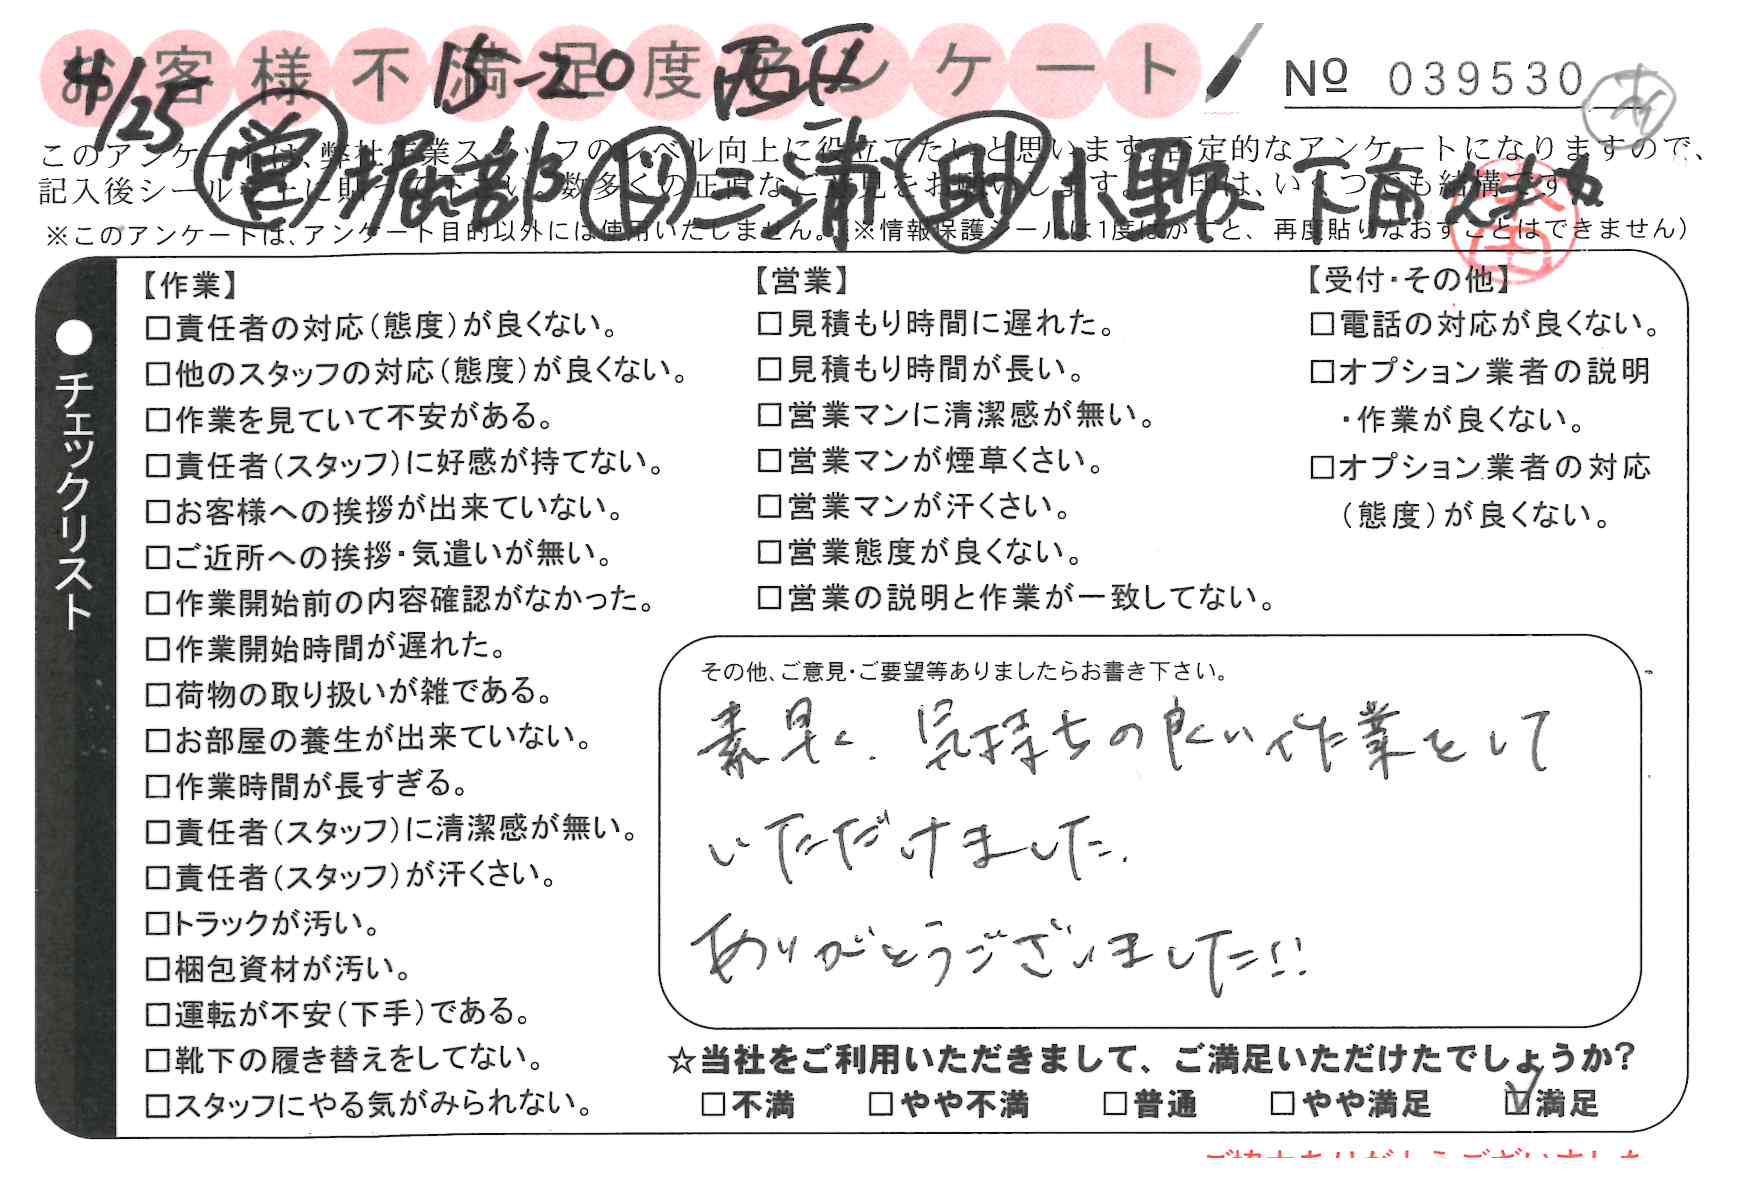 お客様不満足度アンケート
№ 039530
4/25 15-20 西区
営 堀部 ド 三浦 助 小野 下南
このアンケートは、弊社作業スタッフのレベル向上に役立てたいと思います。否定的なアンケートになりますので、
記入後シールを上に貼って下さい。数多くの正直なご意見をお願いします。レ印は、いくつでも結構です。
※このアンケートは、アンケート目的以外には使用いたしません。（※情報保護シールは1度はがすと、再度貼りなおすことはできません）
●チェックリスト
【作業】
□責任者の対応（態度）が良くない。
□他のスタッフの対応（態度）が良くない。
□作業を見ていて不安がある。
□責任者（スタッフ）に好感が持てない。
□お客様への挨拶が出来ていない。
□ご近所への挨拶・気遣いが無い。
□作業開始前の内容確認がなかった。
□作業開始時間が遅れた。
□荷物の取り扱いが雑である。
□お部屋の養生が出来ていない。
□作業時間が長すぎる。
□責任者（スタッフ）に清潔感が無い。
□責任者（スタッフ）が汗くさい。
□トラックが汚い。
□梱包資材が汚い。
□運転が不安（下手）である。
□靴下の履き替えをしてない。
□スタッフにやる気がみられない。
【営業】
□見積もり時間に遅れた。
□見積もり時間が長い。
□営業マンに清潔感が無い。
□営業マンが煙草くさい。
□営業マンが汗くさい。
□営業態度が良くない。
□営業の説明と作業が一致してない。
【受付・その他】
□電話の対応が良くない。
□オプション業者の説明
・作業が良くない。
□オプション業者の対応
（態度）が良くない。
その他、ご意見・ご要望等ありましたらお書き下さい。
素早く、気持ちの良い作業をして
いただけました.
ありがとうございました!!
☆当社をご利用いただきまして、ご満足いただけたでしょうか？
□不満 □やや不満 □普通 □やや満足 ☑満足
ご協力ありがとうございました